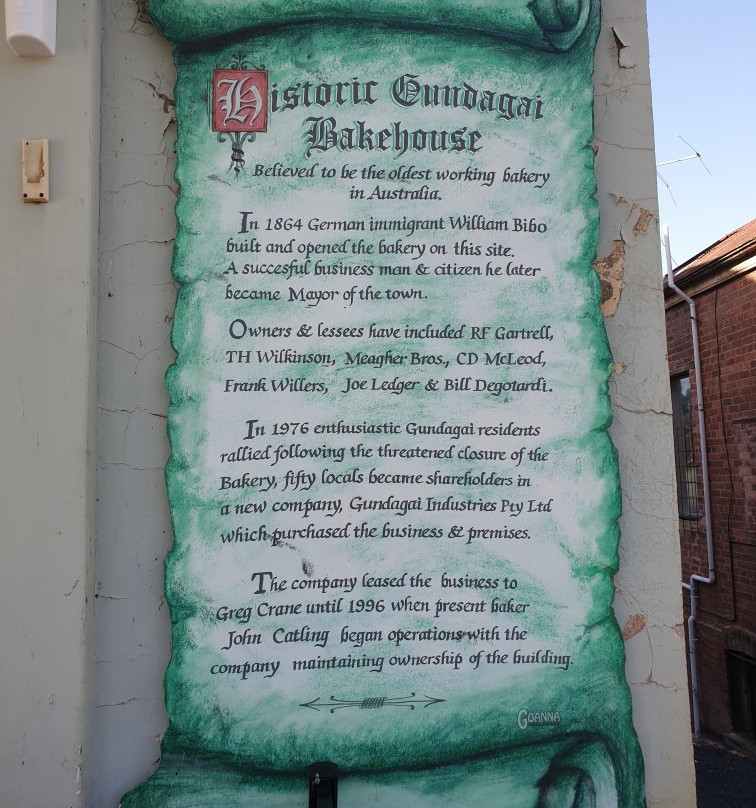 Historic Gundagai
Bakehouse
Believed to be the oldest working bakery
in Australia.
In 1864 German immigrant William Bibo
built and opened the bakery on this site.
A succesful business man & citizen he later
became Mayor of the town.
Owners & lessees have included RF Gartrell,
TH Wilkinson, Meagher Bros., CD McLeod,
Frank Willers, Joe Ledger & Bill Degotardi.
In 1976 enthusiastic Gundagai residents
rallied following the threatened closure of the
Bakery, fifty locals became shareholders in
a new company, Gundagai Industries Pty Ltd
which purchased the business & premises.
The company leased the business to
Greg Crane until 1996 when present baker
John Catling began operations with the
company maintaining ownership of the building.
GOANNA